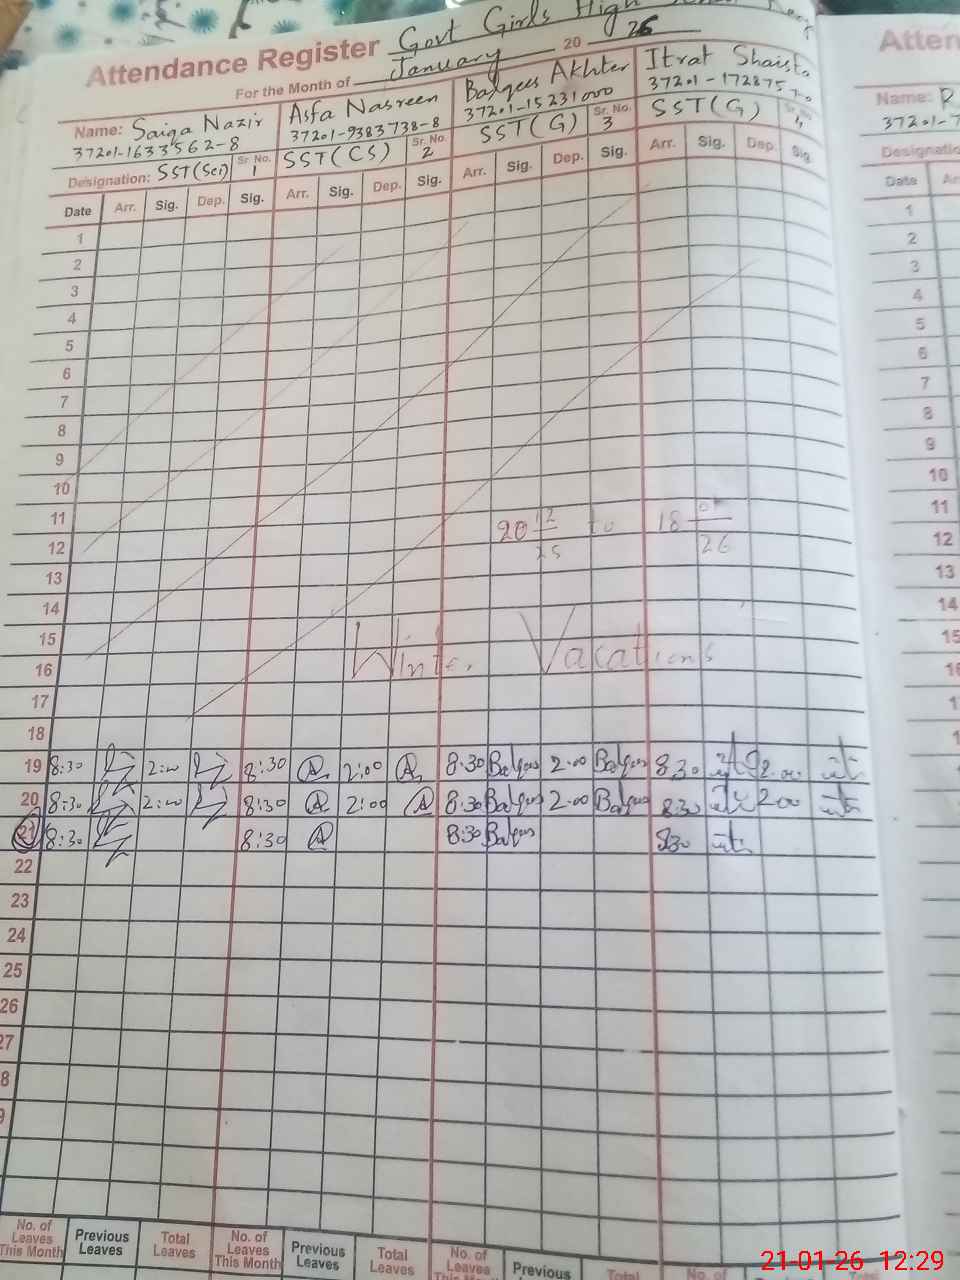 Attendance Register Govt Girls High
For the Month of January 20 26
Name: Saiqa Nazir Asfa Nasreen Balqees Akhter Itrat Shaista
37201-1633562-8 37201-9383738-8 37201-15231000 37201-172875
Designation: SST(Sci) Sr. No. 1 SST(CS) Sr. No. 2 SST(G) Sr. No. 3 SST(G) Sr. No. 4
Date Arr. Sig. Dep. Sig. Arr. Sig. Dep. Sig. Arr. Sig. Dep. Sig. Arr. Sig. Dep. Sig.
1
2
3
4
5
6
7
8
9
10
11
20 12/25 to 18 01/26
12
13
14
15
Winter Vacations
16
17
18
19 8:30 2:00 8:30 A 2:00 A 8:30 Balqees 2:00 Balqees 8:30 2:00
20 8:30 2:00 8:30 A 2:00 A 8:30 Balqees 2:00 Balqees 8:30 2:00
21 8:30 8:30 A 8:30 Balqees 8:30
22
23
24
25
26
27
8
9
No. of Leaves This Month Previous Leaves Total Leaves No. of Leaves This Month Previous Leaves Total Leaves No. of Leaves Previous Total No. of
Atten
Name:
37201-7
Designatio
Date
1
2
3
4
5
6
7
8
9
10
11
12
13
14
15
16
21-01-26 12:29